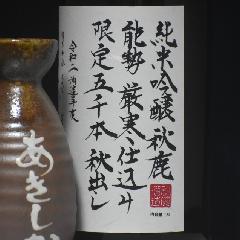 純米吟醸 秋鹿
能勢 厳寒仕込み
限定五千本 秋出し
あきしか